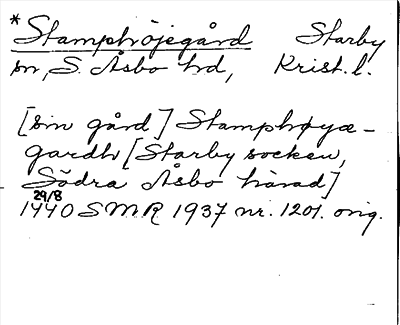 * Stamphöjegård Starby
sn, S. Åsbo hd, Krist. l.
[sin gård] Stamphøyæ-
gardh [Starby socken,
Södra Åsbo härad]
29/8
1440 SMR 1937 nr. 1201. orig.